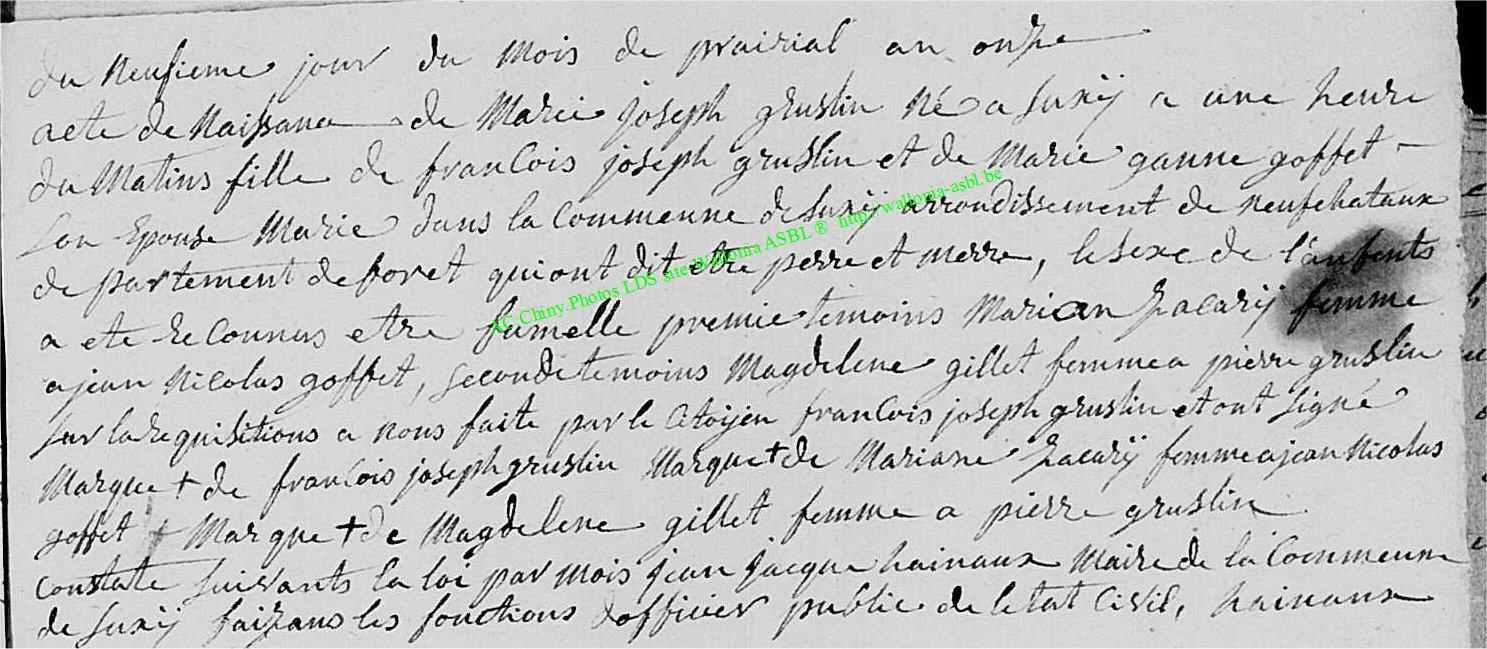 du neufieme jour du mois de prairial an onze
acte de Naissance de Marie joseph gruslin Né a Suxÿ a une heure
du Matins fille de francois joseph gruslin et de Marie ganne goffet -
Son Epouse Marie dans la Commenne de Suxÿ arrondissement de neufchataux
de partement de foret qui ont dit etre perre et merre, le sexe de l'anfents
a ete Reconnus etre fumelle premie temoins Marian Zacarÿ femme
a jean Nicolas goffet, seconde temoins Magdelene gillet femme a pierre gruslin
sur la requisitions a nous faite par le Citoÿen francois joseph gruslin et ont signé
Marque + de francois joseph gruslin Marque + de Mariane Zacarÿ femme a jean Nicolas
goffet + Marque + de Magdelene gillet femme a pierre gruslin
constate suivants la loi par mois jean jacque hainaux Maire de la Commenne
de Suxÿ faizans les fonctions dofficier public de letat Civil, hainaux
AC Chiny Photos LDS site Wallonia ASBL ® http://wallonia-asbl.be